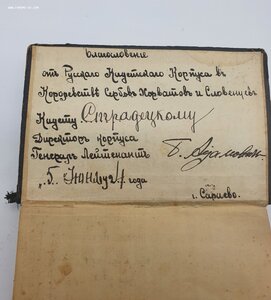 Благословенiе
отъ Русскаго Кадетскаго Корпуса въ
Королевствѣ Сербовъ Хорватовъ и Словенцевъ
Кадету Страдецкому
Директоръ корпуса
Генералъ Лейтенантъ Б. Адамовичъ
года
г. Сараево.